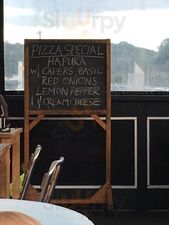 Sluurpy
PIZZA SPECIAL
HAPUKA
W/ CAPERS, BASIL
RED ONIONS
LEMON PEPPER
& CREAM CHEESE